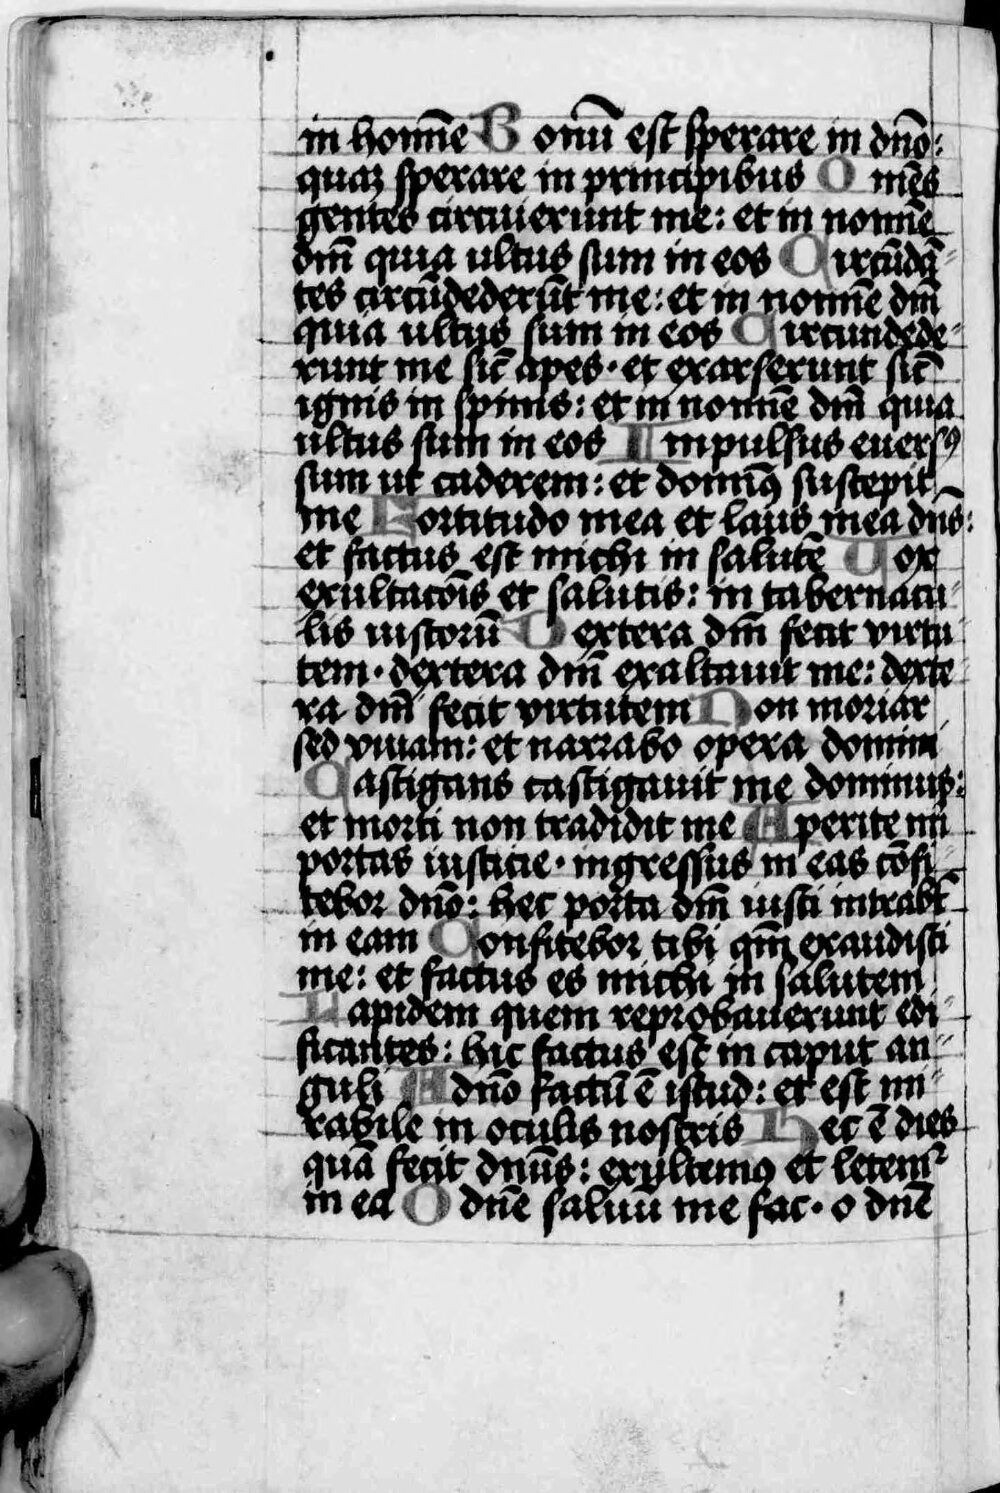 in homīe Bonū est sperare in dnō:
quaꝫ sperare in principibus Omēs
gentes circuierunt me: et in nomīe
dnī quia ultus sum in eos Circūdā-
tes circūdederūt me: et in nomīe dnī
quia ultus sum in eos Circundede-
runt me sic̄ apes· et exarserunt sic̄
ignis in spinis: et in nomīe dnī quia
ultus sum in eos Impulsus euersꝰ
sum ut caderem: et dominꝰ suscepit
me Fortitudo mea et laus mea dn̄s:
et factus est michi in salutē Vox
exultacōis et salutis: in tabernacu-
lis iustorū Dextera dnī fecit virtu-
tem· dextera dnī exaltauit me: dexte-
ra dnī fecit virtutem Non moriar
sed viuam: et narrabo opera domini
Castigans castigauit me dominus:
et morti non tradidit me Aperite mi
portas iusticie· ingressus in eas cōfi-
tebor dnō: hec porta dnī iusti intrabt̄
in eam Confitebor tibi qm̄ exaudisti
me: et factus es michi in salutem
Lapidem quem reprobauerunt edi-
ficantes: hic factus est in caput an-
guli A dnō factū ē istud: et est mi-
rabile in oculis nostris Hec ē dies
quā fecit dnūs: exultemꝰ et letemᷣ
in ea O dnē saluū me fac· o dnē